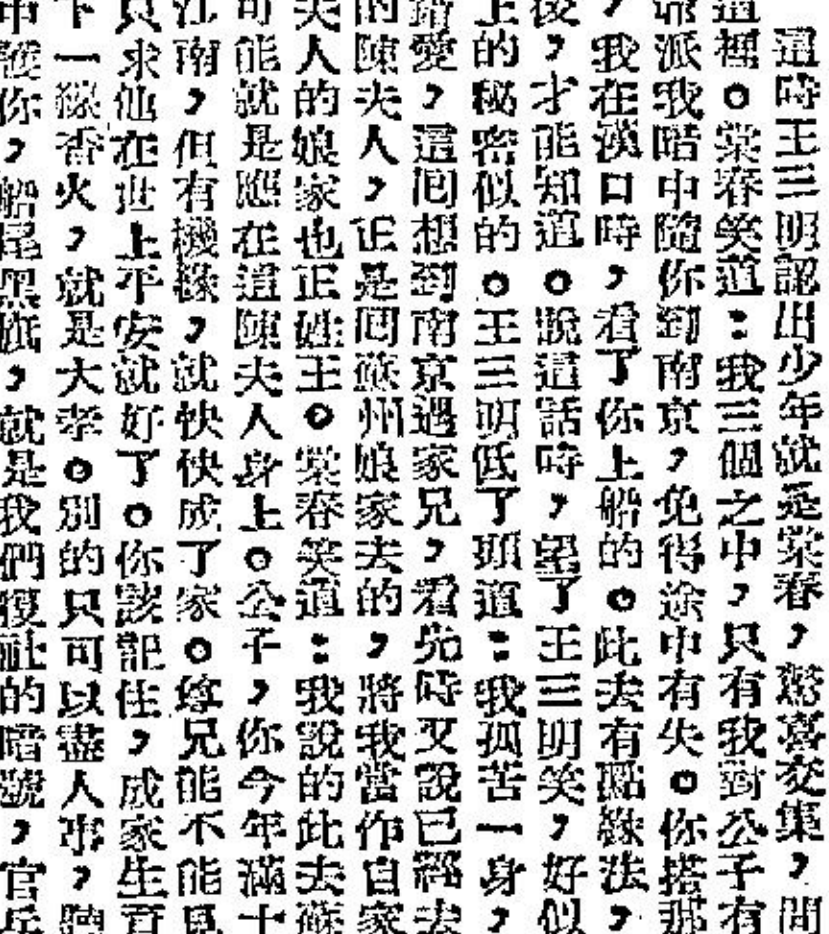 這時王三明認出少年就是棠春，驚喜交集，問
道裡。棠春笑道：我三個之中，只有我對公子有
派我暗中隨你到南京，免得途中有失。你搭那
，我在漢口時，看了你上船的。此去有點緣法，
後，才能知道。說這話時，望了王三明笑，好似
上的秘密似的。王三明低了頭道：我孤苦一身，
錯愛，這回想到南京遇家兄，看先時又說已經去
的陳夫人，正是回蘇州娘家去的，將我當作自家
夫人的娘家也正姓王。棠春笑道：我說的此去蘇
可能就是應在這陳夫人身上。公子，你今年滿十
江南，但有機緣，就快快成了家。尊兄能不能見
只求他在世上平安就好了。你該記住，成家生育
下一線香火，就是大孝。別的只可以盡人事，聽
中護你，船尾黑旗，就是我們復社的暗號，官兵